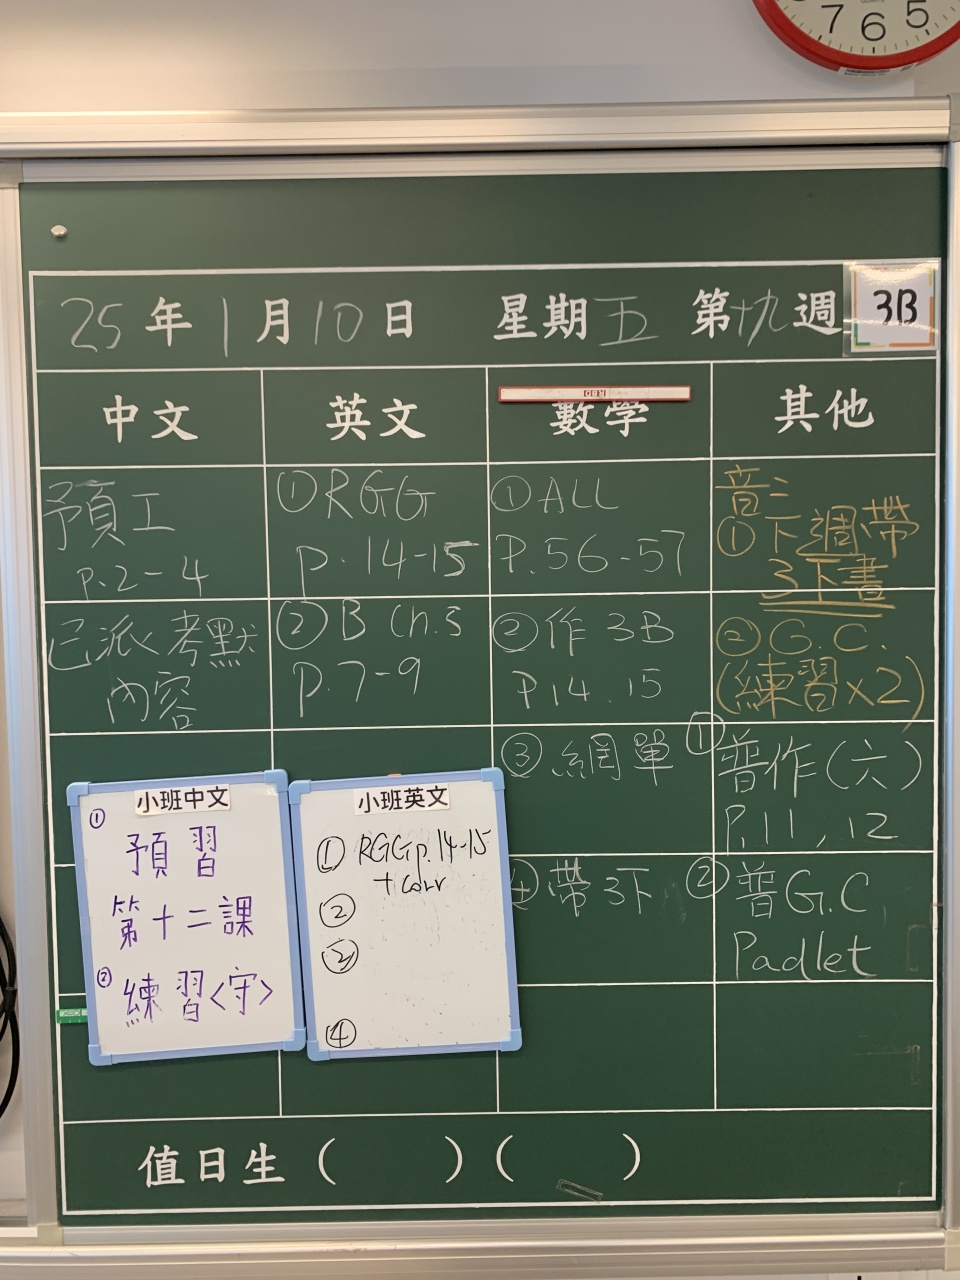 7 6 5
25年1月10日 星期五 第十九週 3B
中文 英文 數學 其他
預工
p.2-4
已派考默
內容
①RGG
p.14-15
②B Ch.3
p.7-9
①ALL
P.56-57
②作3B
P14.15
③網單
④帶3下
音:
①下週帶
3下書
②G.C.
(練習x2)
①普作(六)
P.11,12
②普G.C.
Padlet
小班中文
①預習
第十二課
②練習<守>
小班英文
①RGG p.14-15
+corr
②
③
④
值日生( )( )